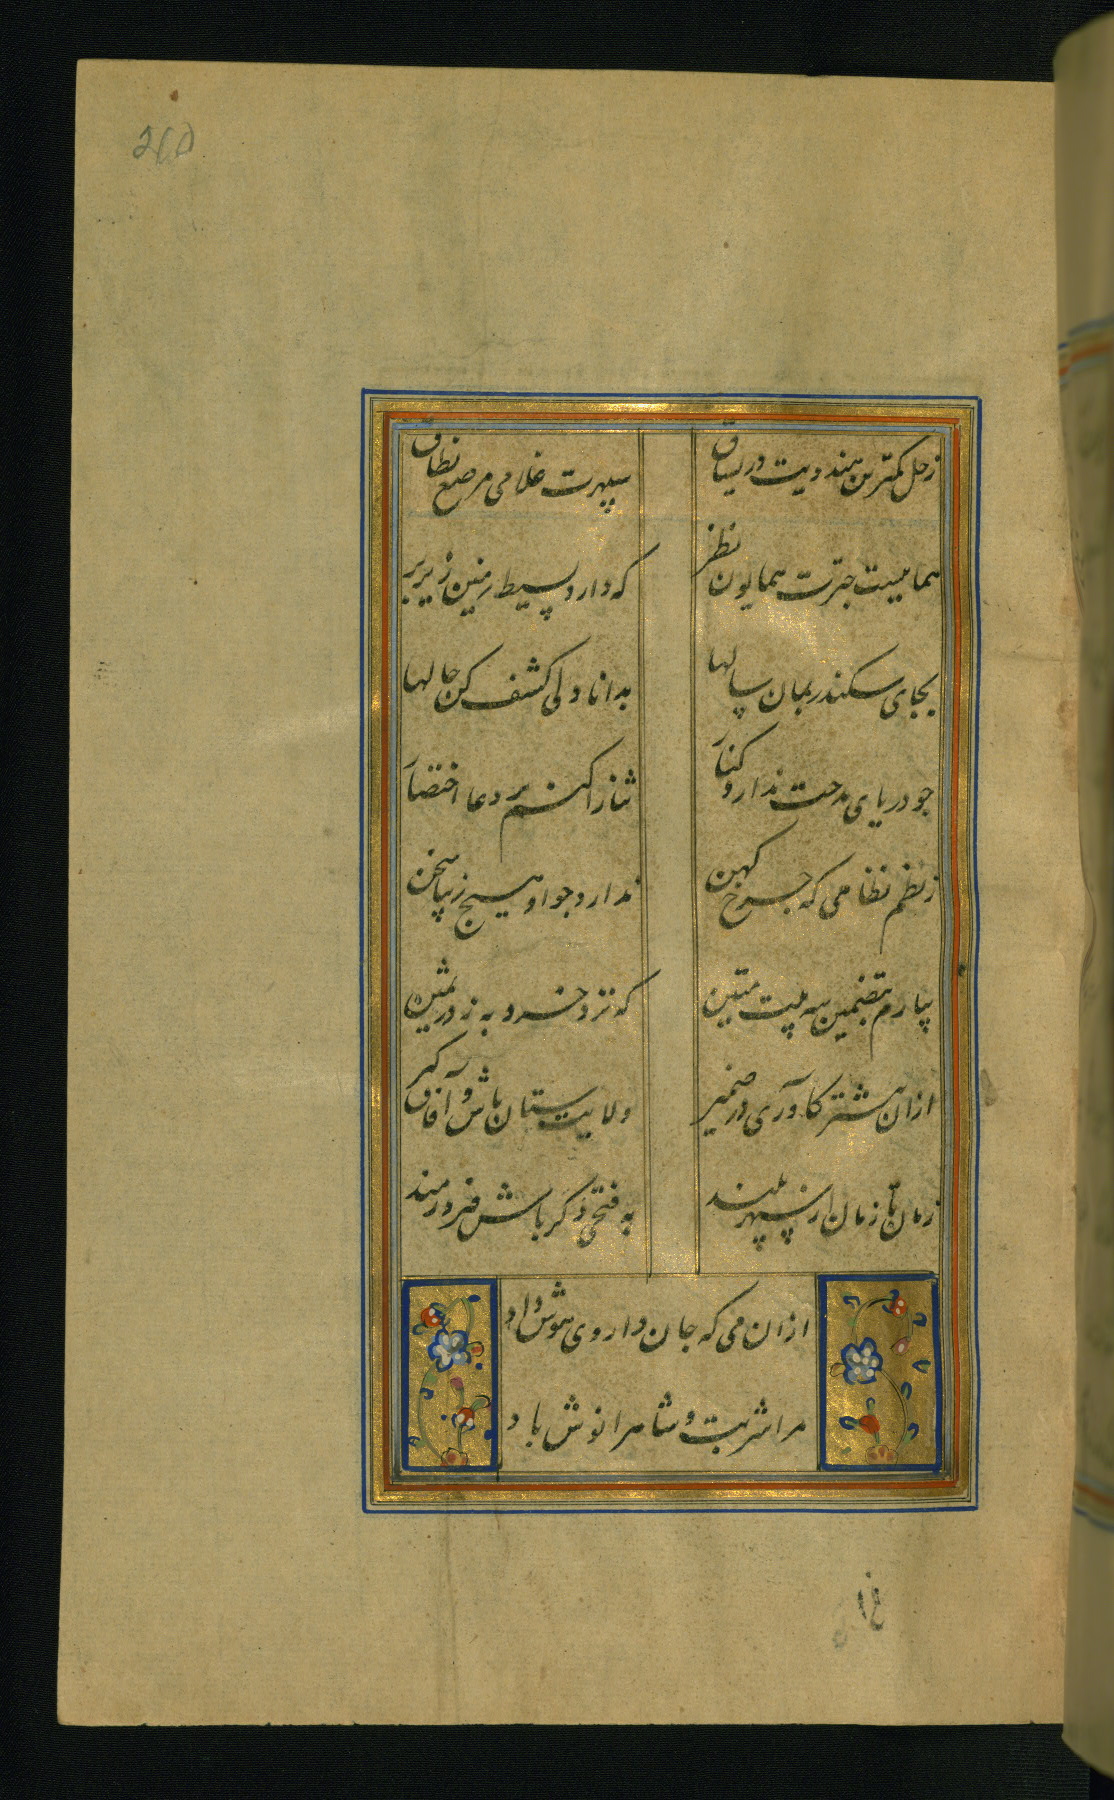 260
زحل کمترین هندویت در سیاق
سپهرت غلامی مرصع نطاق
همائیست چترت همایون نظر
که دارد بسیط زمین زیر پر
بجای سکندر بمان سالها
بدانا دلی کشف کن حالها
چو دریای مدحت ندارد کنار
ثنا را کنم بر دعا اختصار
ز نظم نظامی که چرخ کهن
ندارد چو او هیچ زیبا سخن
بیارم تضمین سه بیت متین
که نزد خرد به ز در ثمین
ازان بیشتر کاوری در ضمیر
ولایت ستان باش و آفاق گیر
زمان تا زمان از سپهر بلند
به فتحی دگر باش فیروزمند
ازان می که جان داروی هوش داد
مرا شربت و شاه را نوش باد